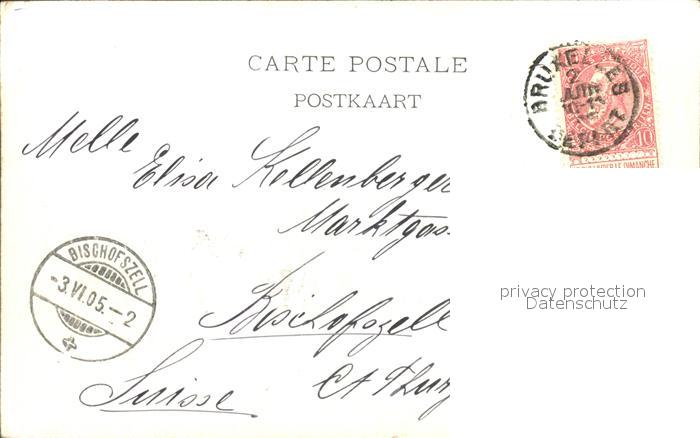 CARTE POSTALE
POSTKAART
BRUXELLES
2
JUIN
DEPART
10
LE DIMANCHE
Melle
Elisa Kellenberger
Marktgas
BISCHOFSZELL
-3.VI.05.-2
privacy protection
Datenschutz
Bischofszell
Suisse Ct Thurg